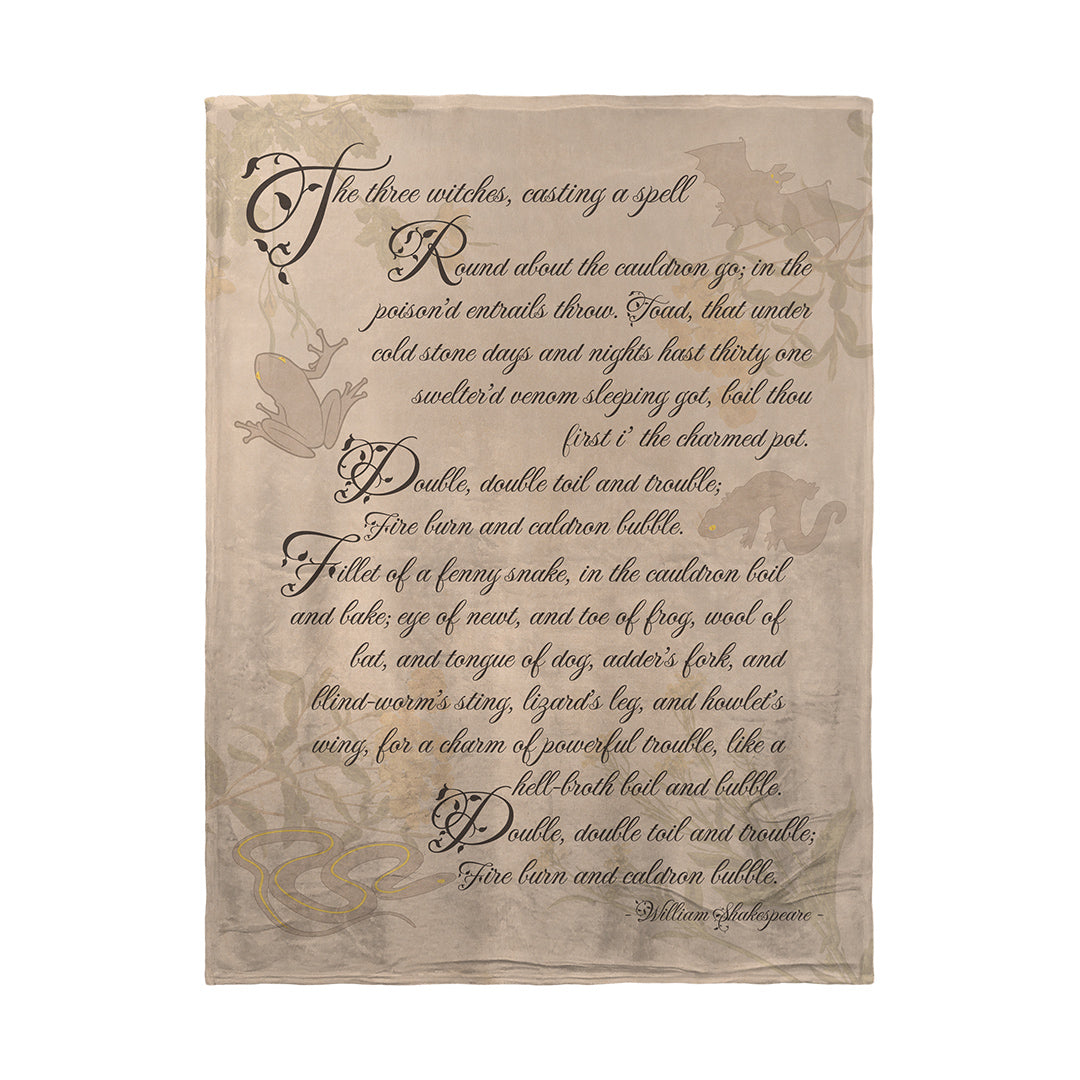 The three witches, casting a spell
Round about the cauldron go; in the
poison'd entrails throw. Toad, that under
cold stone days and nights hast thirty one
swelter'd venom sleeping got, boil thou
first i' the charmed pot.
Double, double toil and trouble;
Fire burn and caldron bubble.
Fillet of a fenny snake, in the cauldron boil
and bake; eye of newt, and toe of frog, wool of
bat, and tongue of dog, adder's fork, and
blind-worm's sting, lizard's leg, and howlet's
wing, for a charm of powerful trouble, like a
hell-broth boil and bubble.
Double, double toil and trouble;
Fire burn and caldron bubble.
- William Shakespeare -